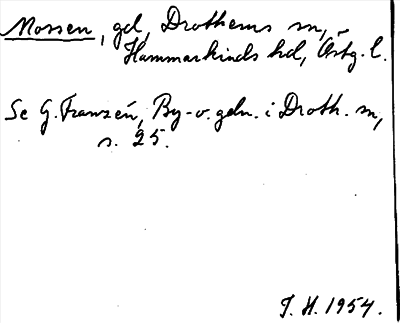 Mossen, gd, Drothems sn,
Hammarkinds hd, Östg. l.
Se G. Franzén, By- o. gdn. i Droth. sn,
s. 25.
J. H. 1954.